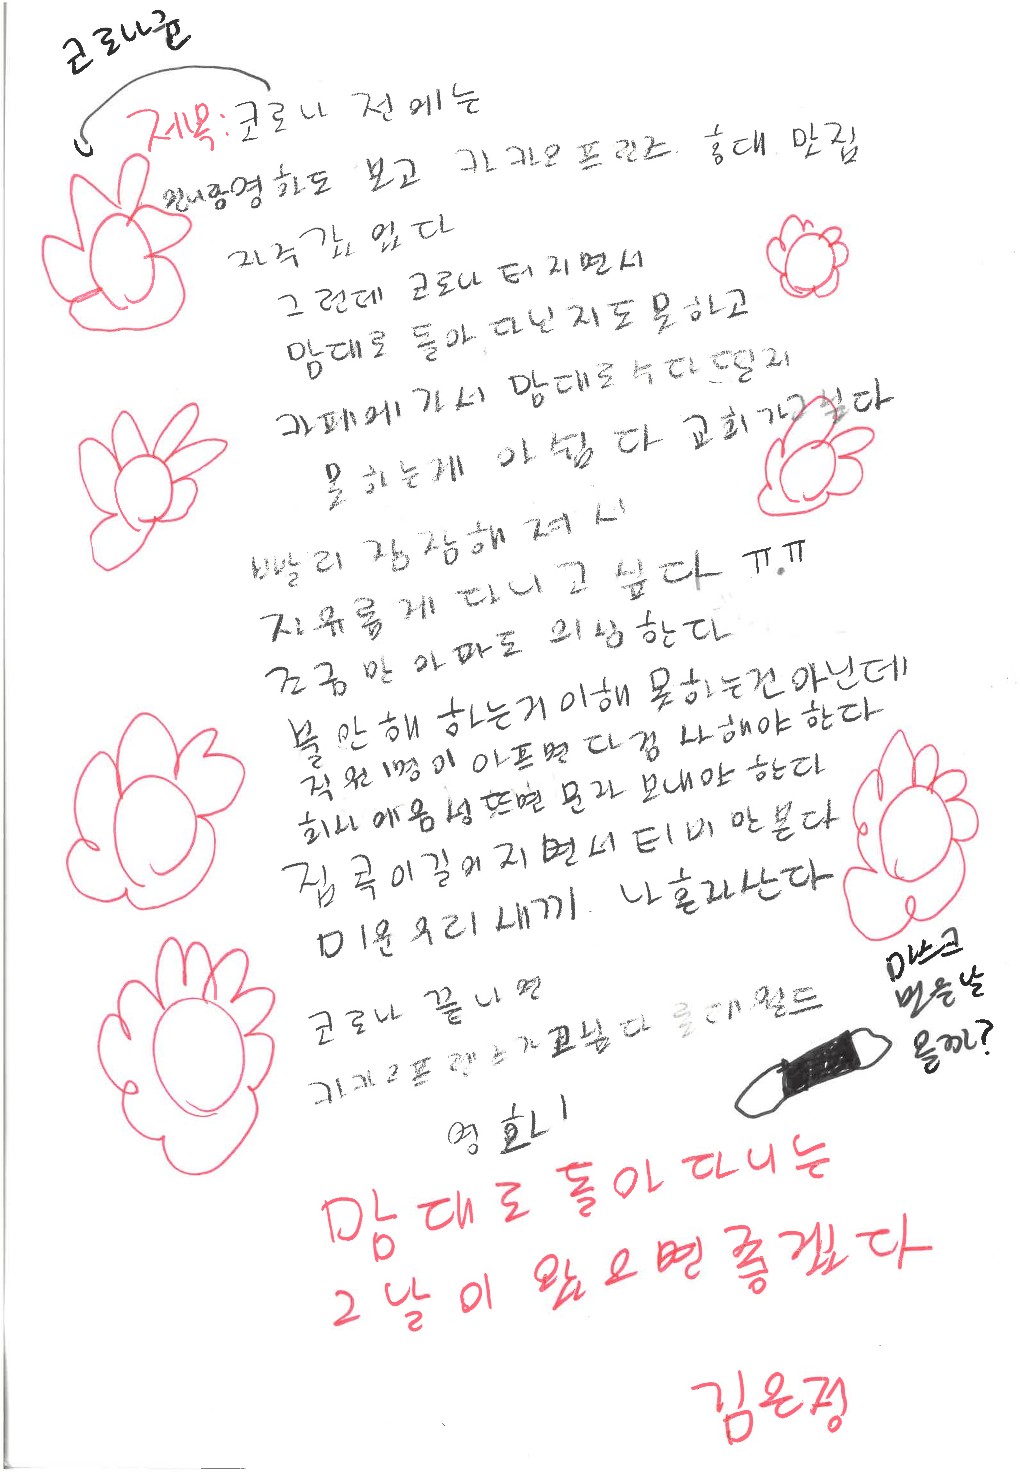 코로나꾼
제목: 코로나 전에는
언니랑영화도 보고 카카오프렌즈 홍대 맛집
자주갔었다
그런데 코로나 터지면서
맘대로 돌아다닌지도못하고
카페에가서 맘대로수다떨지
못하는게 아쉽다 교회가고싶다
빨리 잠잠해져서
자유롭게 다니고 싶다 ㅠ.ㅠ
조금만 아파도 의심한다
불안해하는거이해못하는건아닌데
직원1명이아프면다검사해야한다
회사에음성뜨면문자보내야한다
집콕이길어지면서티비만본다
미운우리새끼. 나혼자산다
코로나 끝나면
카카오프렌즈가고싶다 롯데월드
영화
마스크
벗을날
올까?
맘대로 돌아다니는
그날이 왔으면좋겠다
김은정